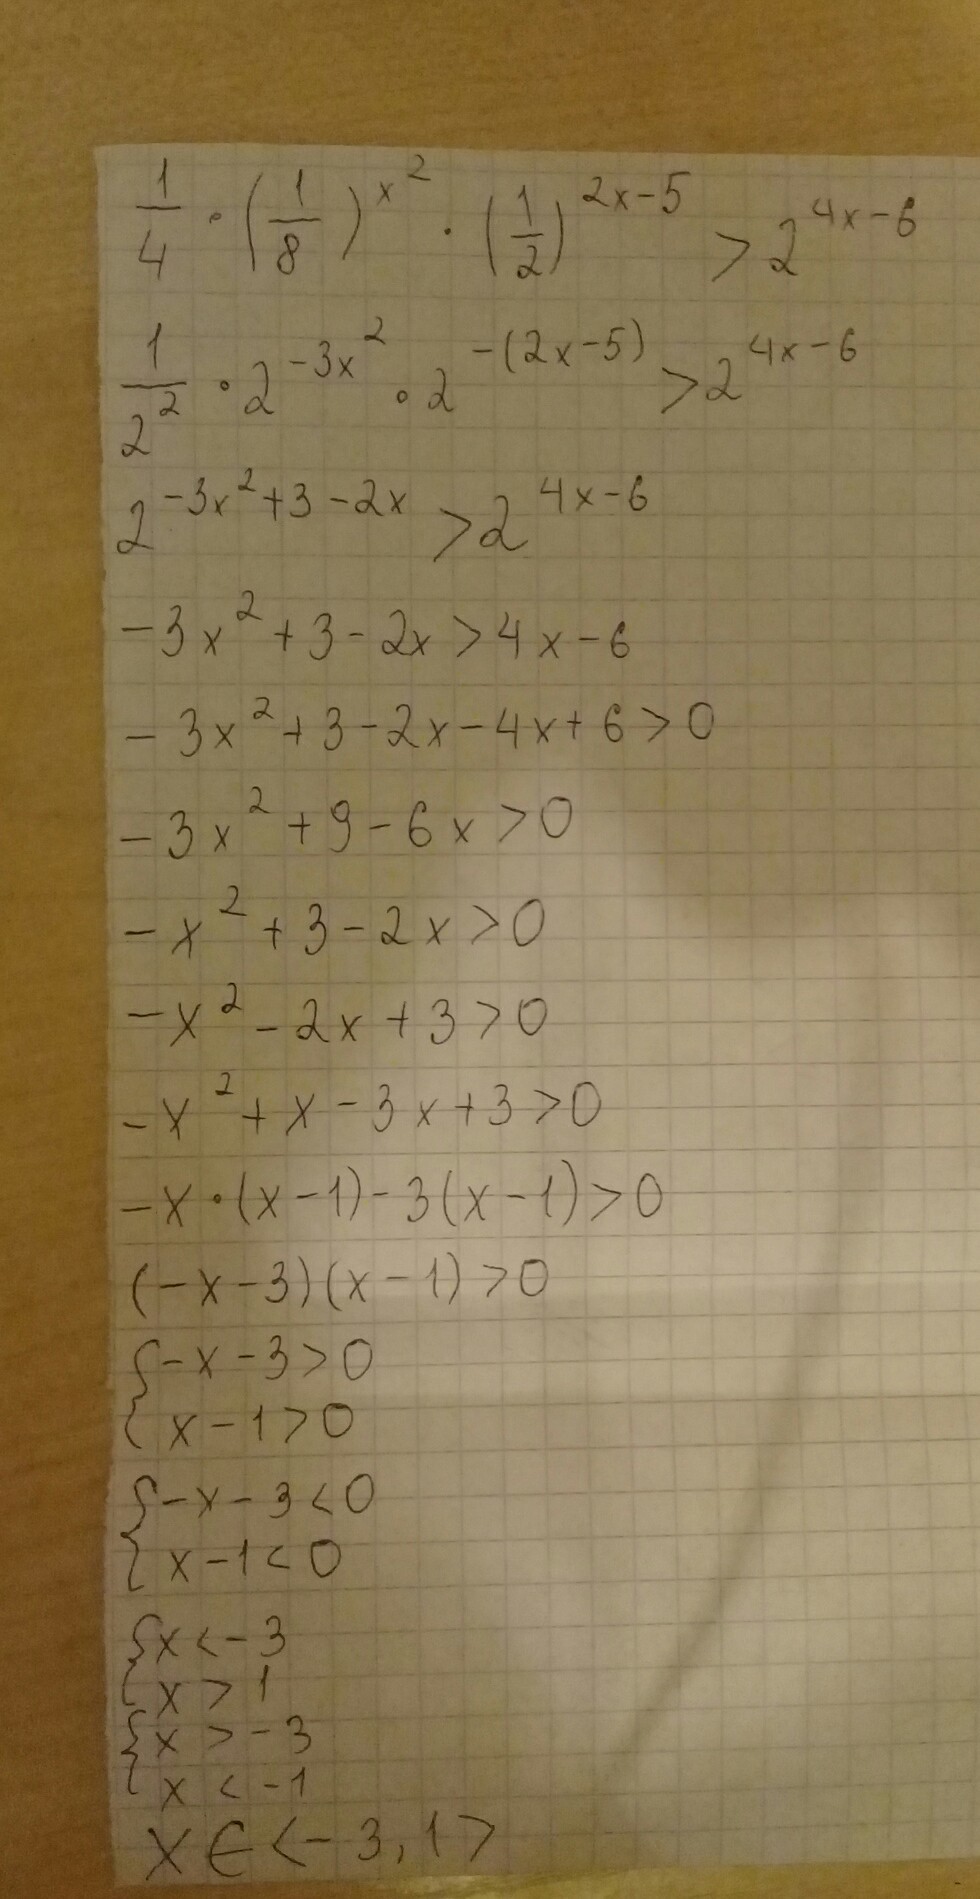 1/4 · (1/8)^x² · (1/2)^2x-5 > 2^4x-6
1/2² · 2^-3x² · 2^-(2x-5) > 2^4x-6
2^-3x²+3-2x > 2^4x-6
-3x²+3-2x>4x-6
-3x²+3-2x-4x+6>0
-3x²+9-6x>0
-x²+3-2x>0
-x²-2x+3>0
-x²+x-3x+3>0
-x·(x-1)-3(x-1)>0
(-x-3)(x-1)>0
{-x-3>0
{x-1>0
{-x-3<0
{x-1<0
{x<-3
{x>1
{x>-3
{x<-1
x∈<-3,1>